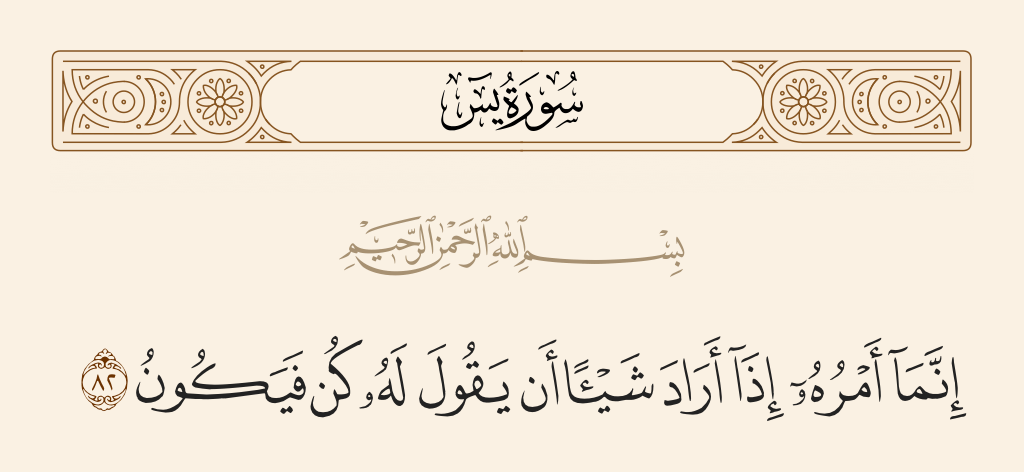 سُورَةُ يسٓ
بِسْمِ ٱللَّهِ ٱلرَّحْمَٰنِ ٱلرَّحِيمِ
إِنَّمَآ أَمْرُهُۥٓ إِذَآ أَرَادَ شَيْـًٔا أَن يَقُولَ لَهُۥ كُن فَيَكُونُ ٨٢